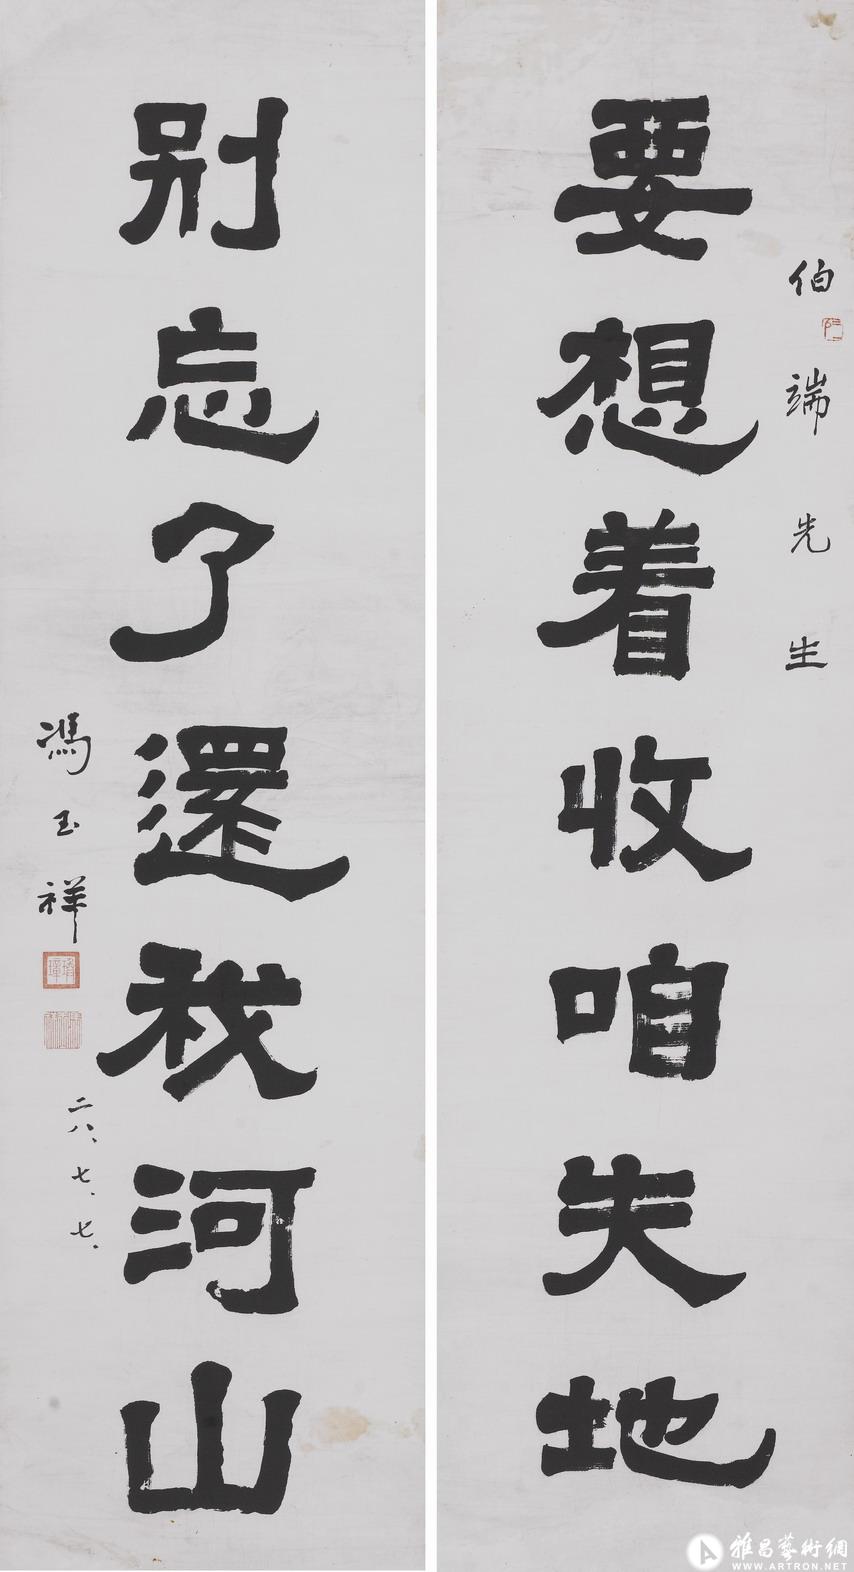 伯端先生
要想着收咱失地
别忘了還我河山
馮玉祥
二八、七、七、
雅昌藝術網
WWW.ARTRON.NET